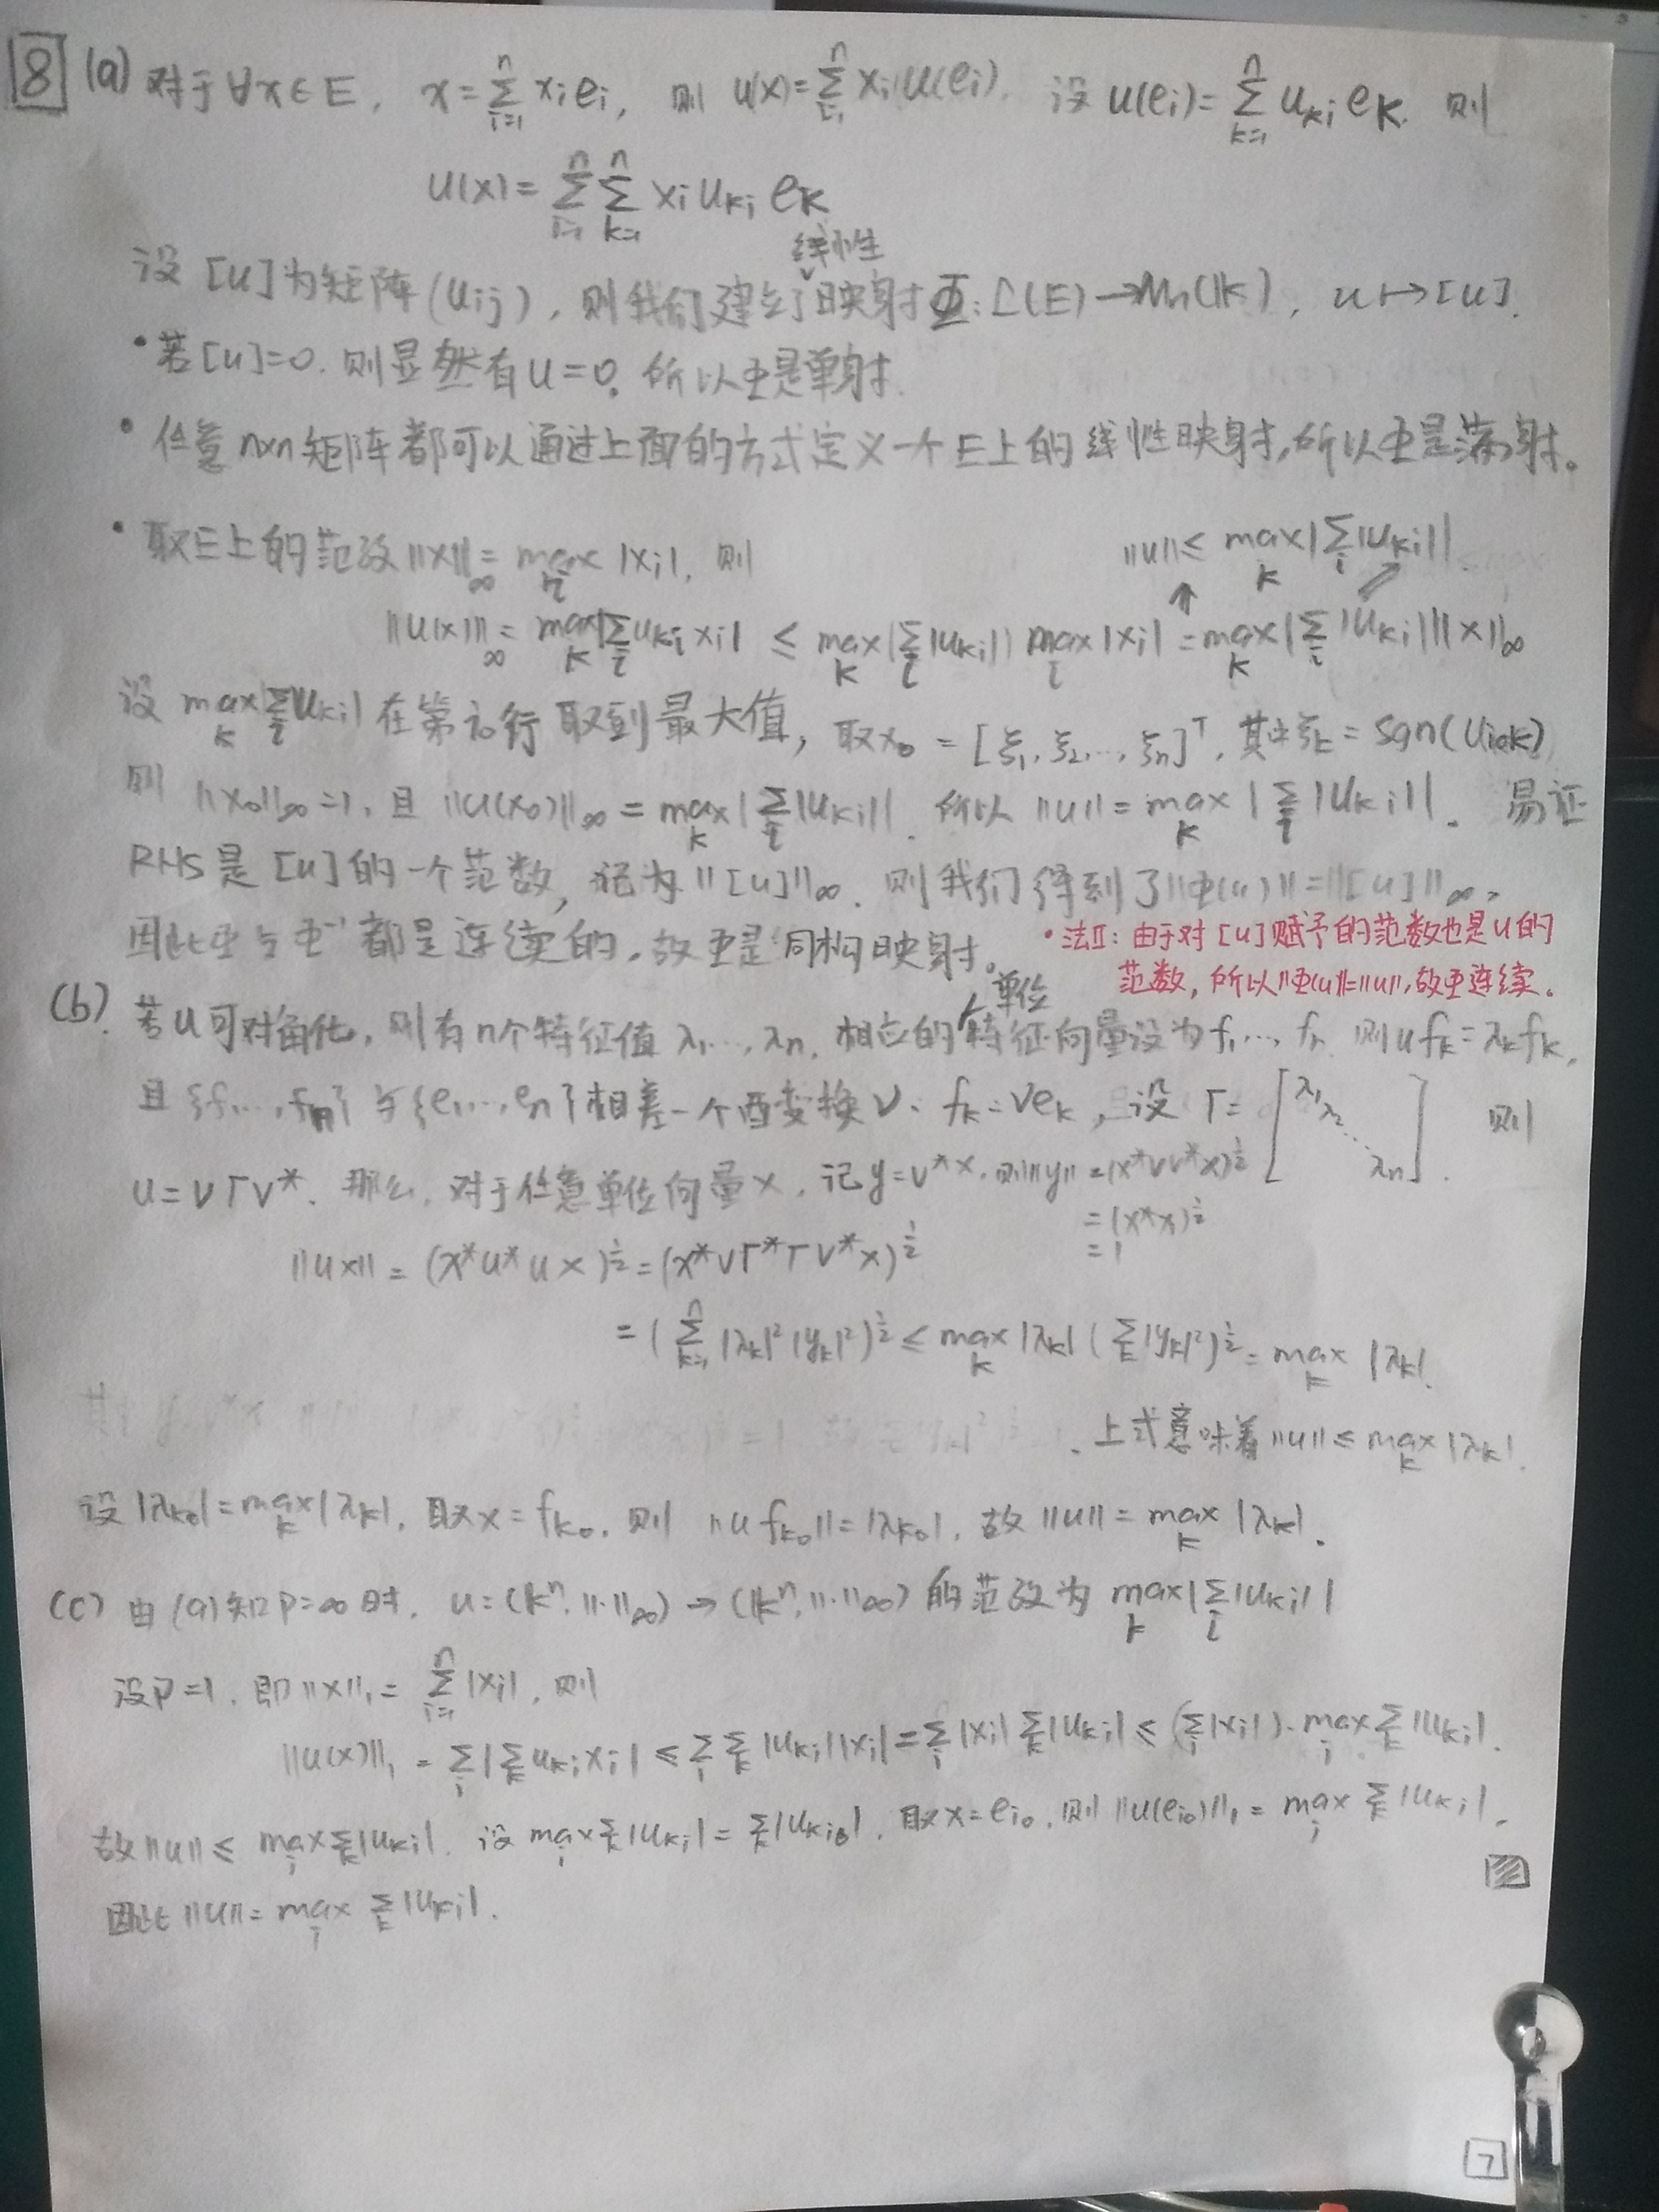 8 (a) 对于∀x∈E, x=∑_{i=1}^n x_i e_i, 则 u(x)=∑_{i=1}^n x_i u(e_i). 设 u(e_i)=∑_{k=1}^n u_{ki} e_k. 则
u(x)=∑_{i=1}^n ∑_{k=1}^n x_i u_{ki} e_k
线性
设[u]为矩阵(u_{ij}), 则我们建立了映射Φ: L(E)→M_n(𝕂), u↦[u].
• 若[u]=0. 则显然有u=0. 所以Φ是单射.
• 任意n×n矩阵都可以通过上面的方式定义一个E上的线性映射, 所以Φ是满射。
• 取E上的范数‖x‖_∞=max_i |x_i|, 则
‖u‖≤ max_k |∑_i |u_{ki}||.
‖u(x)‖_∞ = max_k |∑_i u_{ki} x_i| ≤ max_k |∑_i |u_{ki}|| max_i |x_i| = max_k |∑_i |u_{ki}|| ‖x‖_∞
设 max_k |∑_i u_{ki}| 在第i_0行取到最大值, 取x_0=[ξ_1, ξ_2, ..., ξ_n]^T, 其中ξ_k=sgn(u_{i_0k})
则 ‖x_0‖_∞=1, 且 ‖u(x_0)‖_∞ = max_k |∑_i |u_{ki}||. 所以 ‖u‖ = max_k |∑_i |u_{ki}||. 易证
RHS是[u]的一个范数, 记为‖[u]‖_∞. 则我们得到了‖Φ(u)‖=‖[u]‖_∞,
因此Φ与Φ^{-1}都是连续的, 故Φ是同构映射。
• 法II: 由于对[u]赋予的范数也是u的
范数, 所以‖Φ(u)‖=‖u‖, 故Φ连续.
单位
(b). 若u可对角化, 则有n个特征值λ_1..., λ_n, 相应的特征向量设为f_1..., f_n 则uf_k=λ_k f_k,
且{f_1..., f_n}与{e_1,..., e_n}相差一个酉变换V. f_k=Ve_k, 设 Γ=[λ_1 λ_2 ⋱ λ_n]. 则
u=VΓV*. 那么, 对于任意单位向量x, 记y=V*x, 则‖y‖=(x*VV*x)^{1/2}
=(x*x)^{1/2}
=1
‖ux‖ = (x*u*ux)^{1/2} = (x*VΓ*ΓV*x)^{1/2}
= (∑_{k=1}^n |λ_k|²|y_k|²)^{1/2} ≤ max_k |λ_k| (∑_k |y_k|²)^{1/2} = max_k |λ_k|.
上式意味着‖u‖≤ max_k |λ_k|.
设|λ_{k_0}|=max_k |λ_k|, 取x=f_{k_0}, 则 ‖u f_{k_0}‖=|λ_{k_0}|, 故‖u‖= max_k |λ_k|.
(c) 由(a)知p=∞时, u: (𝕂^n, ‖·‖_∞)→(𝕂^n, ‖·‖_∞)的范数为 max_k |∑_i |u_{ki}||
设p=1, 即‖x‖_1=∑_{i=1}^n |x_i|, 则
‖u(x)‖_1 = ∑_i |∑_k u_{ki} x_i| ≤ ∑_i ∑_k |u_{ki}||x_i| = ∑_i |x_i| ∑_k |u_{ki}| ≤ (∑_i |x_i|)· max_i ∑_k |u_{ki}|.
故‖u‖≤ max_i ∑_k |u_{ki}|. 设 max_i ∑_k |u_{ki}| = ∑_k |u_{ki_0}|, 取x=e_{i_0}, 则‖u(e_{i_0})‖_1 = max_i ∑_k |u_{ki}|.
因此‖u‖= max_i ∑_k |u_{ki}|.
7